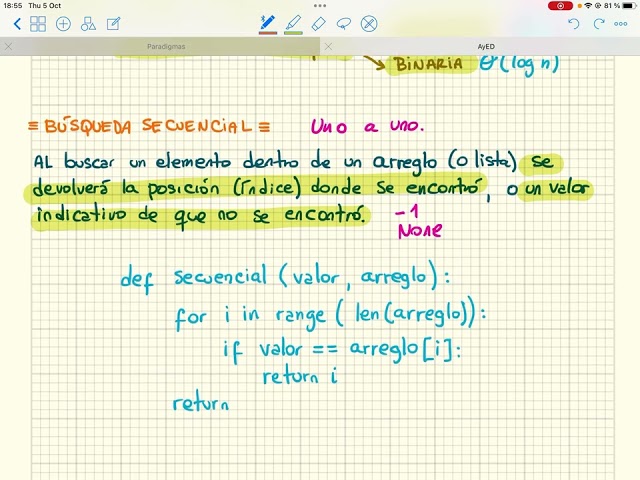 18:55 Thu 5 Oct
81 %
Paradigmas
AyED
BINARIA θ(log n)
≡ BÚSQUEDA SECUENCIAL ≡ Uno a uno.
AL buscar un elemento dentro de un arreglo (o lista) se
devolverá la posición (índice) donde se encontró, o un valor
indicativo de que no se encontró. -1
None
def secuencial (valor, arreglo):
for i in range ( len(arreglo)):
if valor == arreglo[i]:
return i
return